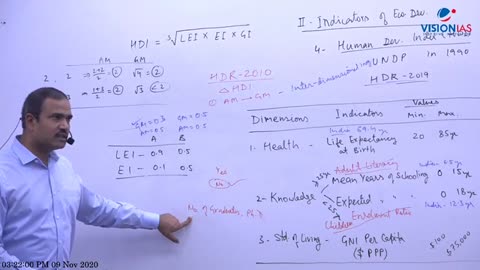 HDI = ∛LEI × EI × GI
AM GM
2, 2 ⇒ 2+2/2 = 2 √4 = 2
⇒ 1+3/2 = 2 √3 < 2
HDR-2010
△HDI
① AM → GM
AM = 0.5 GM = 0.5
AM = 0.5
A B
LEI - 0.9 0.5
EI - 0.1 0.5
Yes
No
No of Graduates, Ph.D
II - Indicators of Eco Dev.
4- Human Dev. Index
Inter-dimensional UNDP in 1990
HDR-2019
Dimensions Indicators Values
Min. Max.
India 69.4 yr
1- Health - Life Expectancy at Birth 20 85yr
Adult Literacy India 6.5 yr
2- Knowledge Mean Years of Schooling 0 15yr
≥25yr
Expected " " 0 18yr
Children Enrolment Ratio India 12.3 yr
3- Std of Living - GNI Per Capita
($ PPP) $100 $75,000
VISIONIAS
03:22:00 PM 09 Nov 2020